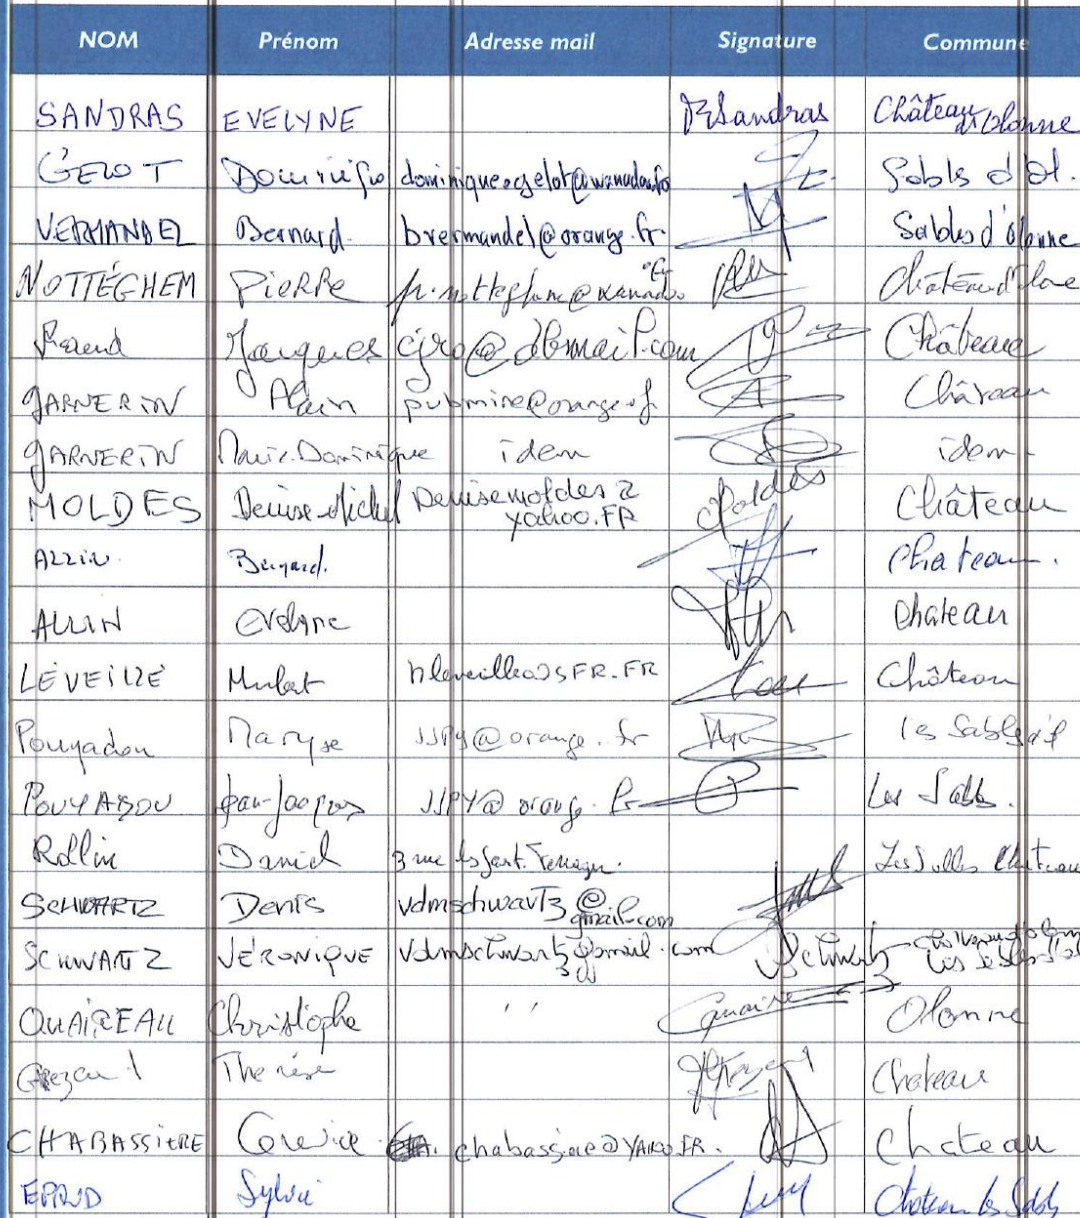 NOM Prénom Adresse mail Signature Commune
SANDRAS EVELYNE Sandras Château d'Olonne
GELOT Dominique dominique.gelot@wanadoo.fr Sables d'Ol.
VERMANDEL Bernard. bvermandel@orange.fr Sables d'Olonne
NOTTÉGHEM PIERRE Château d'Olonne
Jacques Château
GARNERIN Alain pubmine@orange.f Château
GARNERIN Marie-Dominique idem idem
MOLDES Denise-Michel Denisemoldes 2 Moldes Château
yahoo.FR
ALLIN Bernard. Chateau.
ALLIN Evelyne Chateau
LÉVEILLÉ Hubert hleveille@SFR.FR Château
Pouyadou Maryse JJPY@orange.fr les Sables
POUYADOU Jean-Jacques JJPY@orange.fr Les Sables.
Rollin Daniel 3 rue Les Sables Chateau
SCHWARTZ Denis vdmschwartz@
gmail.com
SCHWARTZ VÉRONIQUE vdmschwartz@gmail.com Schwartz
QUAIREAU Christophe '' Quaire Olonne
Thérèse Chateau
CHABASSIERE chabassiere@YAHOO.FR. Chateau
EPAUD Sylvie Chateau les Sables